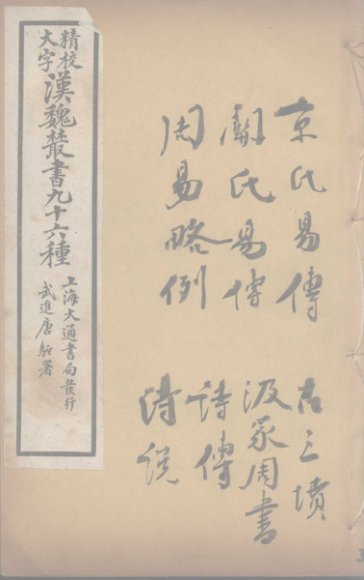 京氏易傳
關氏易傳
周易略例
古三墳
汲冢周書
詩傳
詩說
精校
大字
漢魏叢書九十六種
上海大通書局發行
武進唐駝署